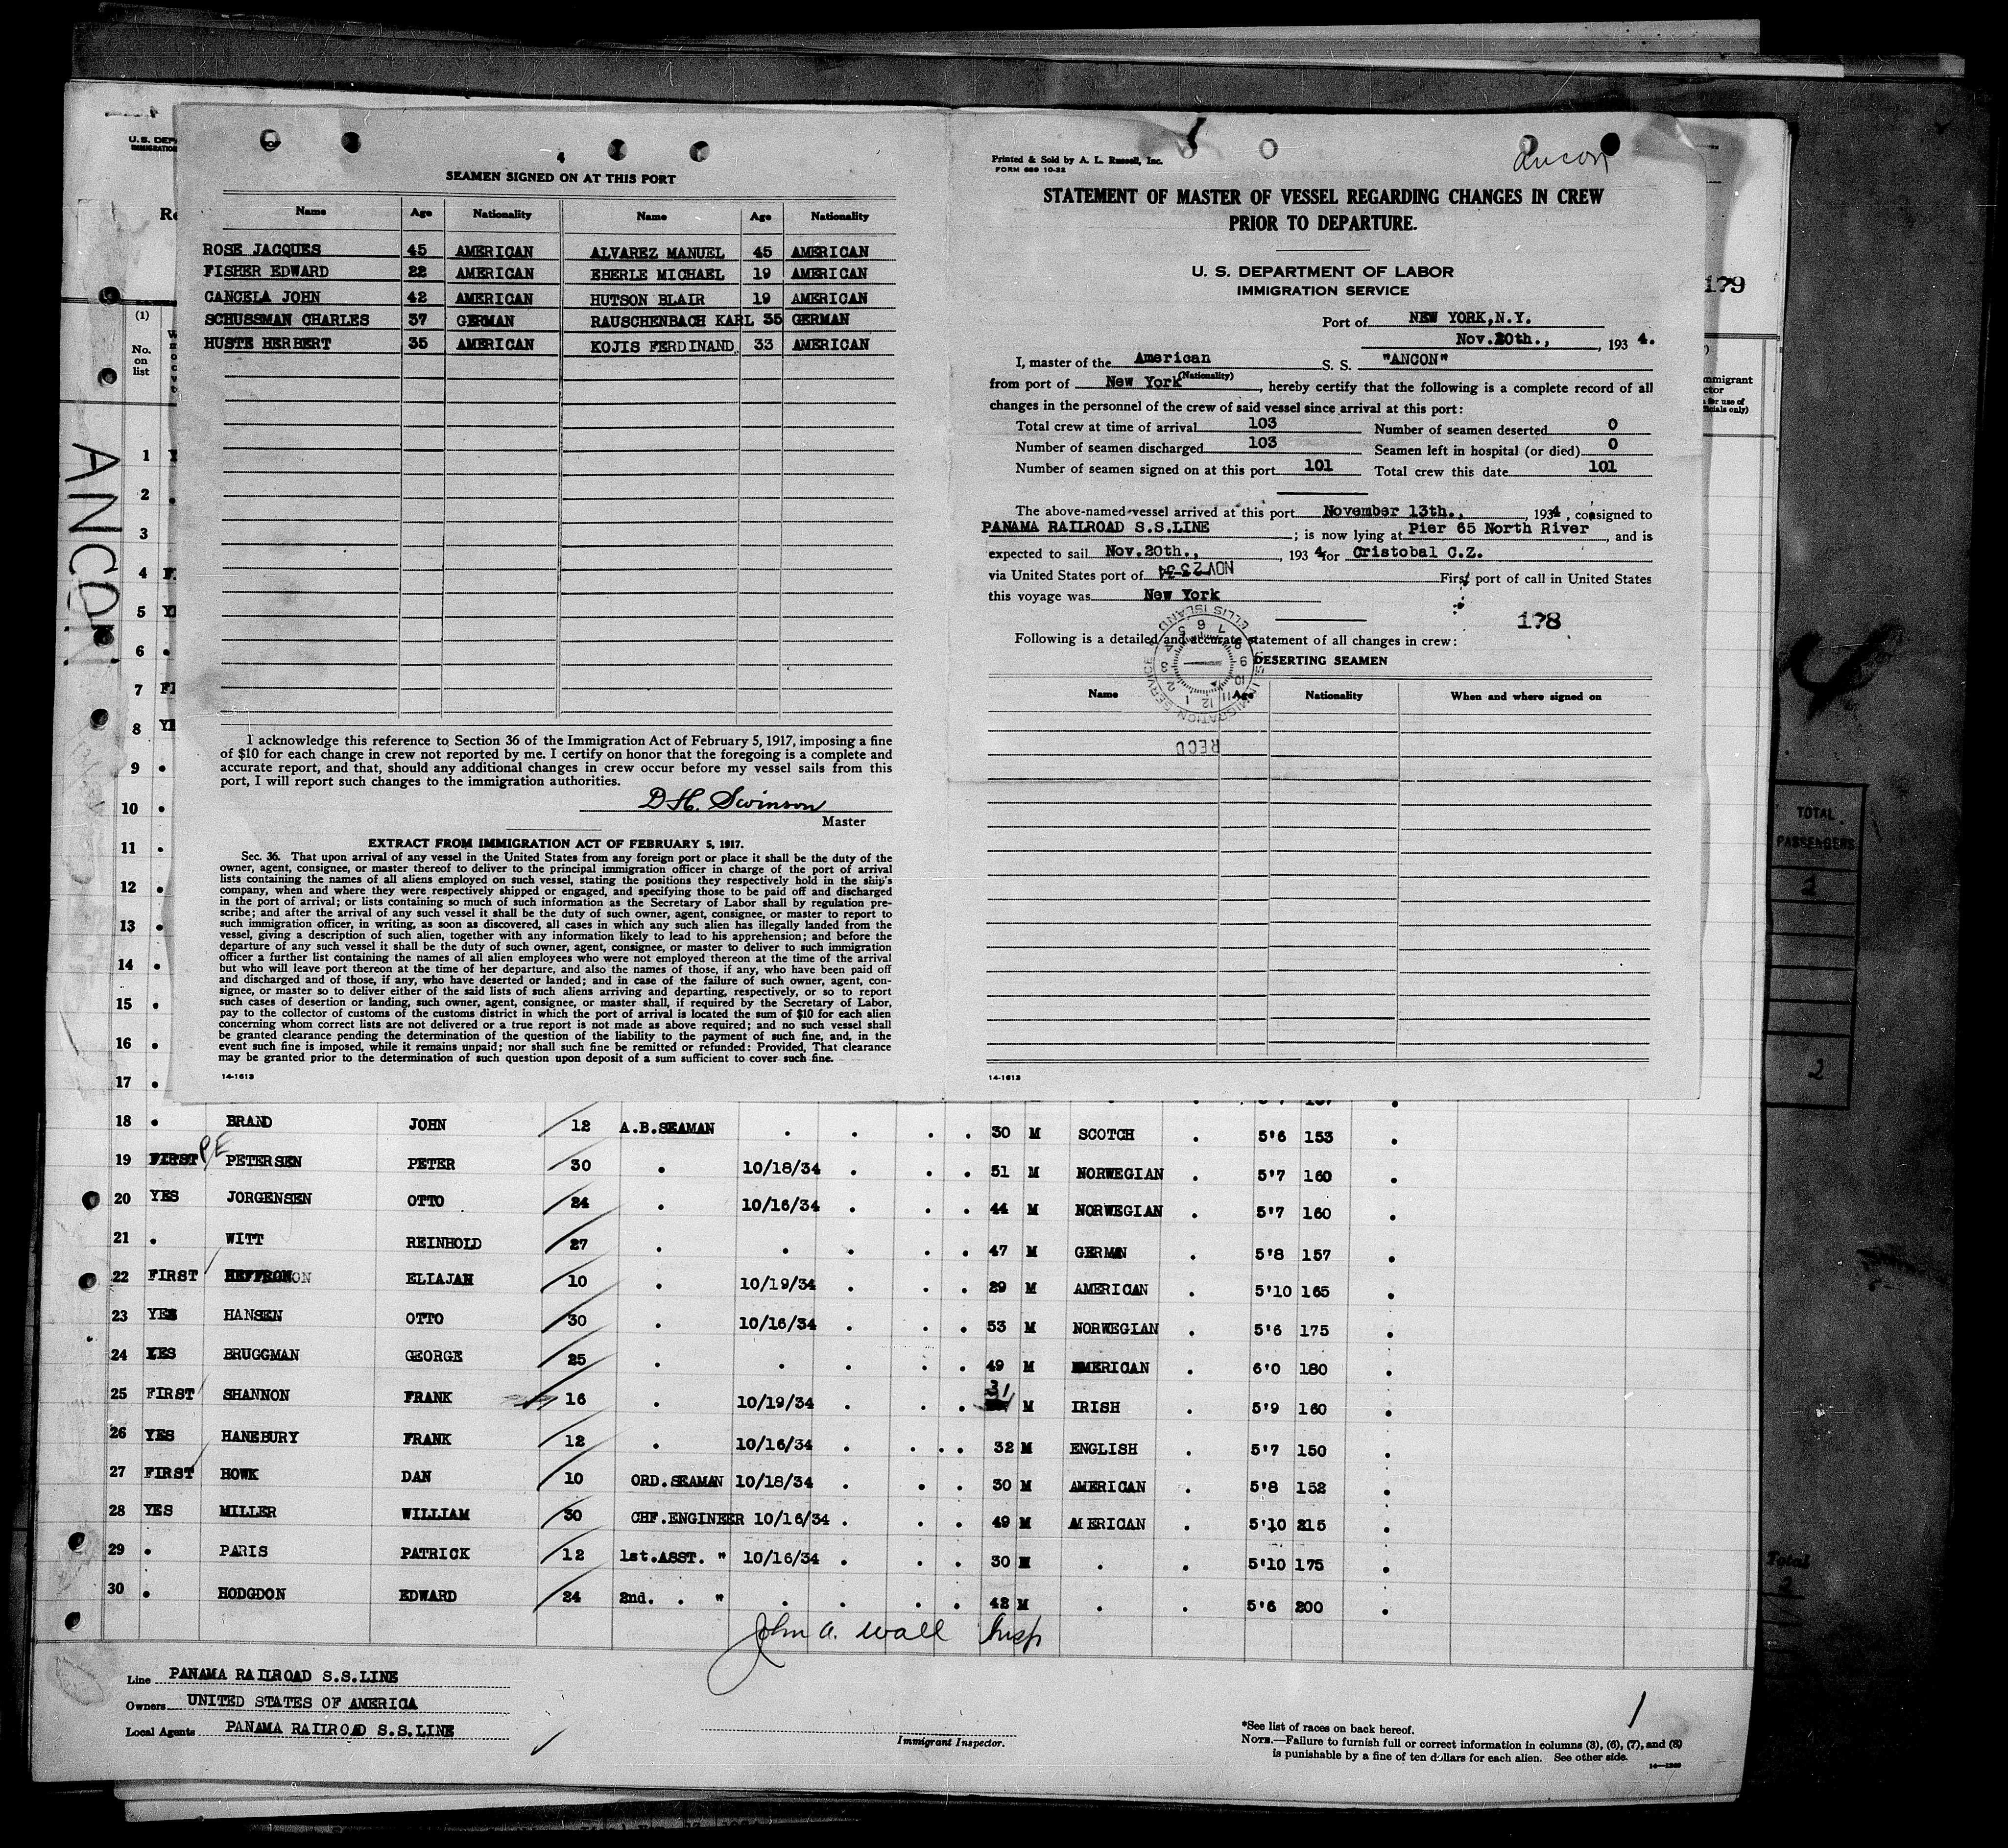 4
SEAMEN SIGNED ON AT THIS PORT
Name Age Nationality Name Age Nationality
ROSE JACQUES 45 AMERICAN ALVAREZ MANUEL 45 AMERICAN
FISHER EDWARD 22 AMERICAN EBERLE MICHAEL 19 AMERICAN
CANCELA JOHN 42 AMERICAN HUTSON BLAIR 19 AMERICAN
SCHUSSMAN CHARLES 37 GERMAN RAUSCHENBACH KARL 35 GERMAN
HUSTE HERBERT 35 AMERICAN KOJIS FERDINAND 33 AMERICAN
I acknowledge this reference to Section 36 of the Immigration Act of February 5, 1917, imposing a fine
of $10 for each change in crew not reported by me. I certify on honor that the foregoing is a complete and
accurate report, and that, should any additional changes in crew occur before my vessel sails from this
port, I will report such changes to the immigration authorities.
D H. Swinson
Master
EXTRACT FROM IMMIGRATION ACT OF FEBRUARY 5, 1917.
Sec. 36. That upon arrival of any vessel in the United States from any foreign port or place it shall be the duty of the
owner, agent, consignee, or master thereof to deliver to the principal immigration officer in charge of the port of arrival
lists containing the names of all aliens employed on such vessel, stating the positions they respectively hold in the ship's
company, when and where they were respectively shipped or engaged, and specifying those to be paid off and discharged
in the port of arrival; or lists containing so much of such information as the Secretary of Labor shall by regulation pre-
scribe; and after the arrival of any such vessel it shall be the duty of such owner, agent, consignee, or master to report to
such immigration officer, in writing, as soon as discovered, all cases in which any such alien has illegally landed from the
vessel, giving a description of such alien, together with any information likely to lead to his apprehension; and before the
departure of any such vessel it shall be the duty of such owner, agent, consignee, or master to deliver to such immigration
officer a further list containing the names of all alien employees who were not employed thereon at the time of the arrival
but who will leave port thereon at the time of her departure, and also the names of those, if any, who have been paid off
and discharged and of those, if any, who have deserted or landed; and in case of the failure of such owner, agent, con-
signee, or master so to deliver either of the said lists of such aliens arriving and departing, respectively, or so to report
such cases of desertion or landing, such owner, agent, consignee, or master shall, if required by the Secretary of Labor,
pay to the collector of customs of the customs district in which the port of arrival is located the sum of $10 for each alien
concerning whom correct lists are not delivered or a true report is not made as above required; and no such vessel shall
be granted clearance pending the determination of the question of the liability to the payment of such fine, and, in the
event such fine is imposed, while it remains unpaid; nor shall such fine be remitted or refunded: Provided, That clearance
may be granted prior to the determination of such question upon deposit of a sum sufficient to cover such fine.
14-1613
Printed & Sold by A. L. Russell, Inc.
FORM 689 10-32
ancon
STATEMENT OF MASTER OF VESSEL REGARDING CHANGES IN CREW
PRIOR TO DEPARTURE.
U. S. DEPARTMENT OF LABOR
IMMIGRATION SERVICE
Port of NEW YORK,N.Y.
Nov.20th., , 193 4.
I, master of the American S. S. "ANCON"
(Nationality)
from port of New York , hereby certify that the following is a complete record of all
changes in the personnel of the crew of said vessel since arrival at this port:
Total crew at time of arrival 103 Number of seamen deserted 0
Number of seamen discharged 103 Seamen left in hospital (or died) 0
Number of seamen signed on at this port 101 Total crew this date 101
The above-named vessel arrived at this port November 13th., , 1934 , consigned to
PANAMA RAILROAD S.S.LINE ; is now lying at Pier 65 North River , and is
expected to sail Nov.20th., , 193 4 for Cristobal C.Z.
via United States port of First port of call in United States
NOV 23 34
this voyage was New York
178
Following is a detailed and accurate statement of all changes in crew:
DESERTING SEAMEN
Name Age Nationality When and where signed on
U.S. IMMIGRATION SERVICE ELLIS ISLAND
RECD
14-1613
U. S. DEP
IMMIGRATION
179
(1)
No.
on
list
ANCON
1
2
3
4
5
6
7
8
9
10
11
12
13
14
15
16
17
18 . BRAND JOHN 12 A.B.SEAMAN . . . . 30 M SCOTCH . 5'6 153 .
19 FIRST PE PETERSEN PETER 30 . 10/18/34 . . . 51 M NORWEGIAN . 5'7 160 .
20 YES JORGENSEN OTTO 24 . 10/16/34 . . . 44 M NORWEGIAN . 5'7 160 .
21 . WITT REINHOLD 27 . . . . . 47 M GERMN . 5'8 157 .
22 FIRST HEFFRON ELIAJAH 10 . 10/19/34 . . . 29 M AMERICAN . 5'10 165 .
23 YES HANSEN OTTO 30 . 10/16/34 . . . 53 M NORWEGIAN . 5'6 175 .
24 YES BRUGGMAN GEORGE 25 . . . . . 49 M AMERICAN . 6'0 180 .
25 FIRST SHANNON FRANK 16 . 10/19/34 . . . 31 M IRISH . 5'9 160 .
26 YES HANEBURY FRANK 12 . 10/16/34 . . . . 32 M ENGLISH . 5'7 150 .
27 FIRST HOWK DAN 10 ORD.SEAMAN 10/18/34 . . . 30 M AMERICAN . 5'8 152 .
28 YES MILLER WILLIAM 30 CHF.ENGINEER 10/16/34 . . . 49 M AMERICAN . 5'10 215 .
29 . PARIS PATRICK 12 1st.ASST. " 10/16/34 . . . 30 M . . 5'10 175 .
30 . HODGDON EDWARD 24 2nd. . " . . . . 42 M . . 5'6 200 .
John A. Wall Insp
Line PANAMA RAILROAD S.S.LINE
Owners UNITED STATES OF AMERICA
Local Agents PANAMA RAILROAD S.S.LINE
Immigrant Inspector.
1
*See list of races on back hereof.
NOTE.—Failure to furnish full or correct information in columns (3), (6), (7), and (8)
is punishable by a fine of ten dollars for each alien. See other side.
TOTAL
PASSENGERS
2
2
Total
2